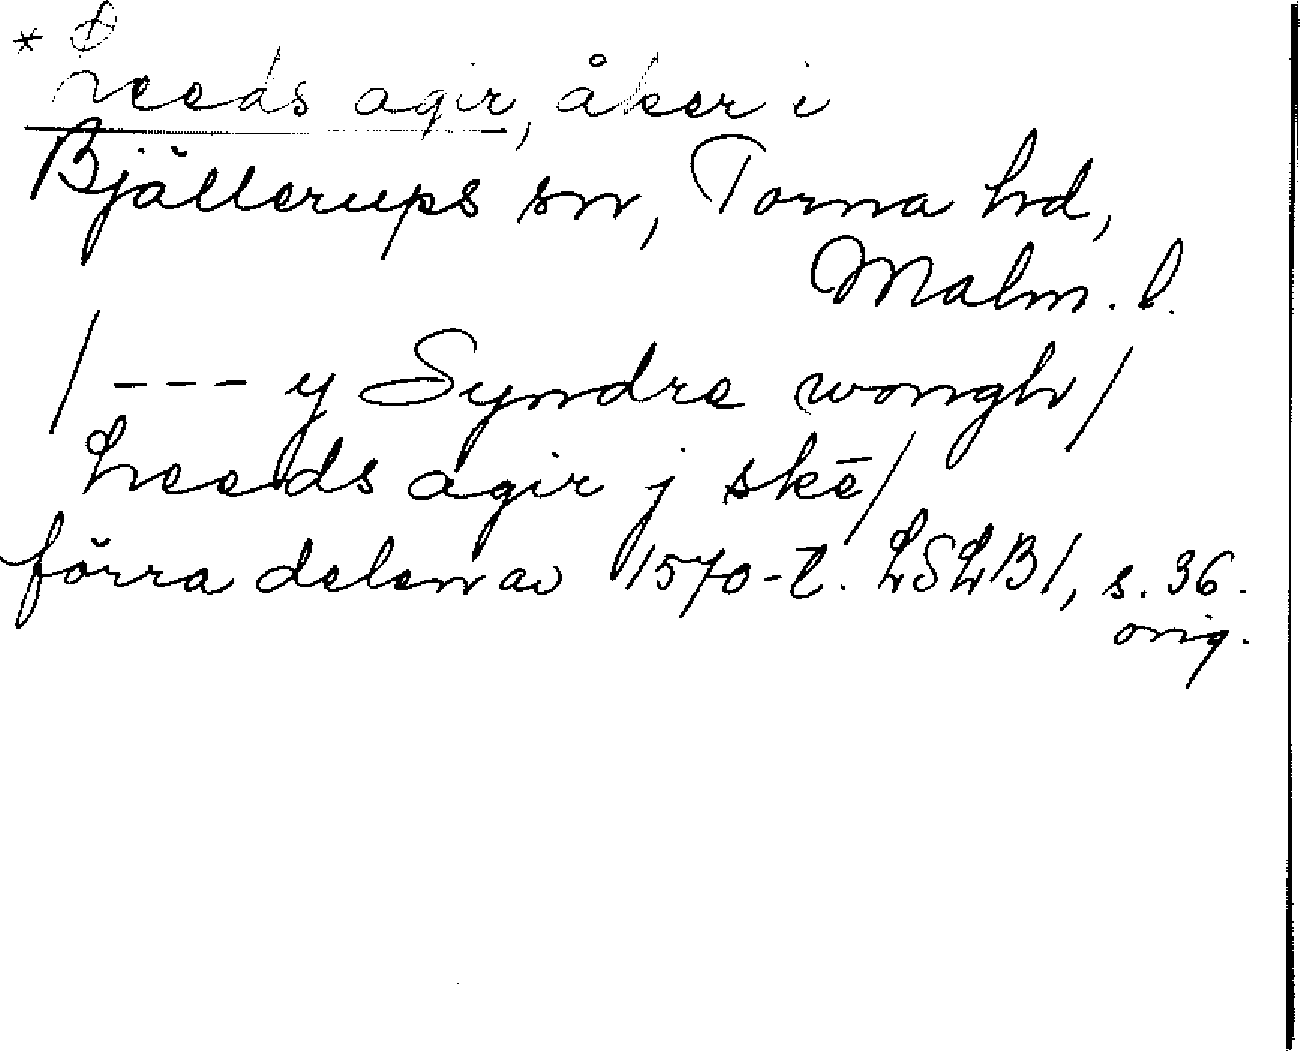 * ⊕
heeds agir, åker i
Bjällerups sn, Torna hd,
Malm. l.
/ --- y Syndre wongh /
heeds agir j skē /
förra delen av 1570-t. LSLB 1, s. 36.
orig.